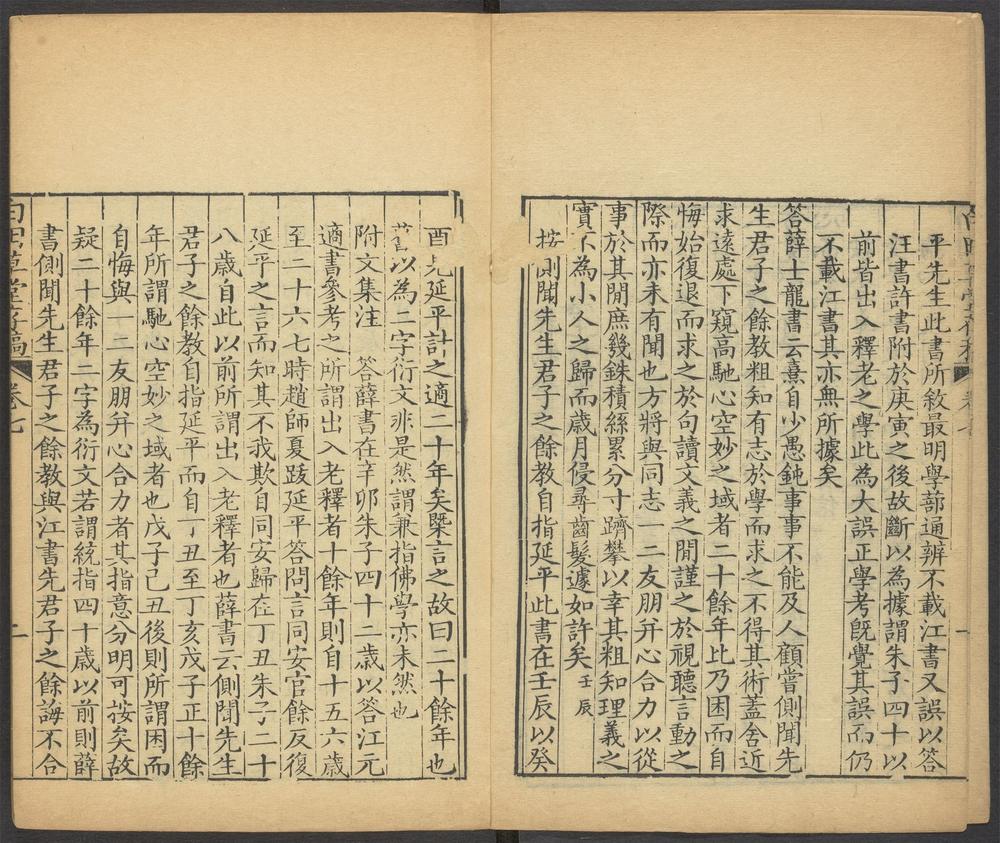 平先生此書所敘最明學蔀通辨不載江書又誤以答
汪書許書附於庚寅之後故斷以為據謂朱子四十以
前皆出入釋老之學此為大誤正學考旣覺其誤而仍
不載江書其亦無所據矣
答薛士龍書云熹自少愚鈍事事不能及人顧嘗側聞先
生君子之餘教粗知有志於學而求之不得其術蓋舍近
求遠處下窺高馳心空妙之域者二十餘年比乃困而自
悔始復退而求之於句讀文義之閒謹之於視聽言動之
際而亦未有聞也方將與同志一二友朋幷心合力以從
事於其閒庶幾銖積絲累分寸躋攀以幸其粗知理義之
實不為小人之歸而歲月侵尋齒髮遽如許矣 壬辰
按側聞先生君子之餘教自指延平此書在壬辰以癸
酉見延平計之適二十年矣槩言之故曰二十餘年也
舊以為二字衍文非是然謂兼指佛學亦未然也
附文集注 答薛書在辛卯朱子四十二歲以答江元
適書參考之所謂出入老釋者十餘年則自十五六歲
至二十六七時趙師夏跋延平答問言同安官餘反復
延平之言而知其不我欺自同安歸在丁丑朱子二十
八歲自此以前所謂出入老釋者也薛書云側聞先生
君子之餘教自指延平而自丁丑至丁亥戊子正十餘
年所謂馳心空妙之域者也戊子己丑後則所謂困而
自悔與一二友朋幷心合力者其指意分明可按矣故
疑二十餘年二字為衍文若謂統指四十歲以前則薛
書側聞先生君子之餘教與江書先君子之餘誨不合
草堂存稿 卷七 二